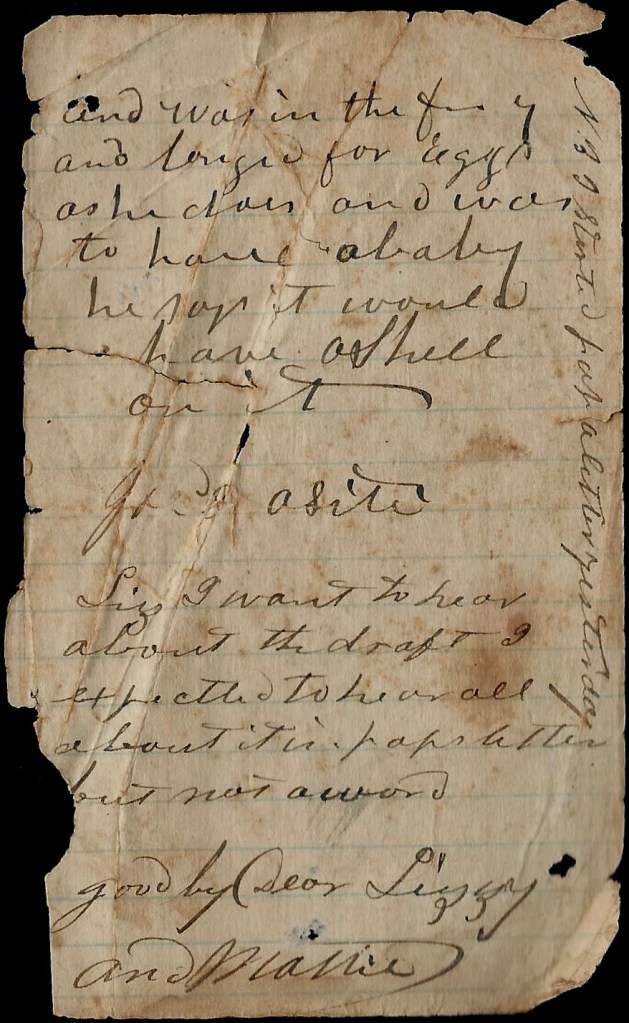 and was in the
and longed for Eggs
as he does and was
to have a baby
he says it would
have a Shell
on it
a site
Liz I want to hear
about the draft I
expectted to hear all
about it in paps letter
but not a word
good by Dear Lizzy
and Mattie
N.B I Started pap a letter yesterday